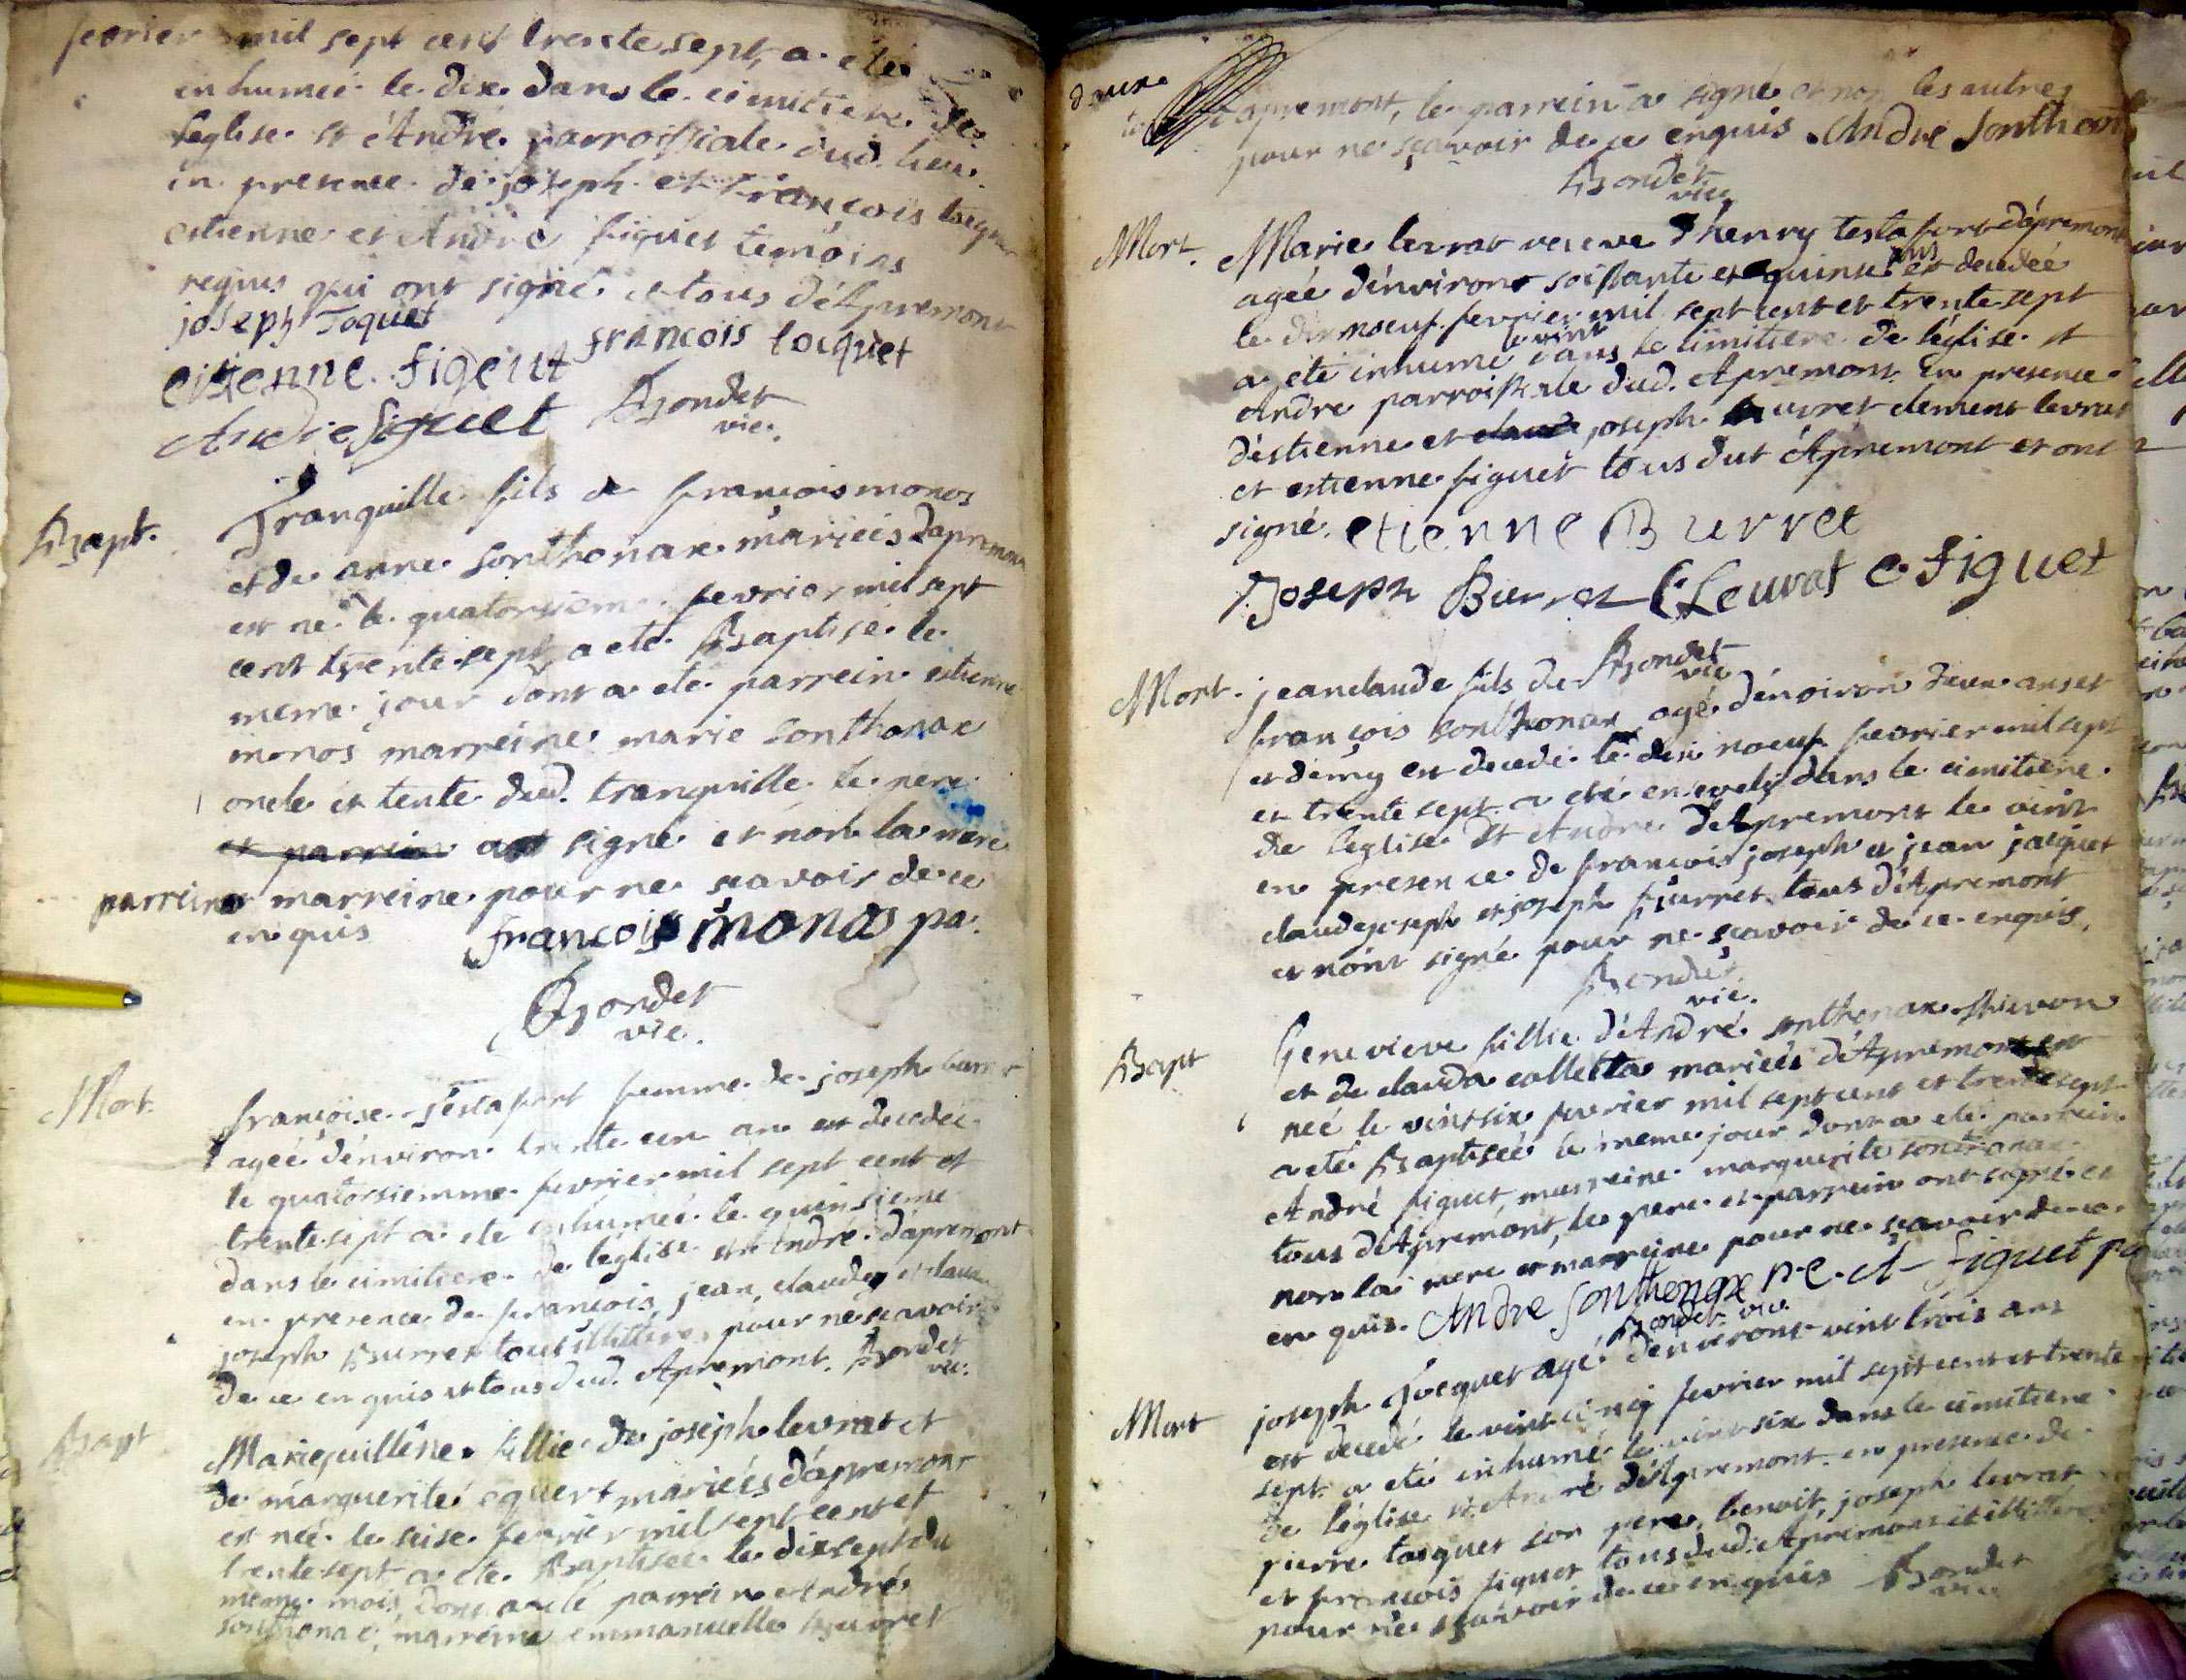 fevrier mil sept cent trente sept, a été
enhumeé le dix dans le cimitiere de
l'eglise st André parroissiale dud. lieu
en presence de joseph et françois
estienne et André figuet temoins
requis qui ont signé et tous d'Apremont
joseph Toquet
françois tocquet
etienne figeut
Andre figuet
Bondet
vic.
Bapt. Tranquille fils de francois monos
et de anne sonthonax mariés dapremont
est né le quatorsiem fevrier mil sept
cent trente sept, a eté Baptisé le
meme jour dont a eté parrein estienne
monos marreine marie sonthonax
oncle et tente dud. tranquille le pere
et parrein a signé et non la mere
parrein marreine pour ne scavoir de ce
enquis francois monos pa.
Bondet
vic.
Mort. françoise testafort femme de joseph burret
ageé d'environ trente un an est decedeé
le quatorsiemme fevrier mil sept cent et
trente sept a eté enhumeé le quinsieme
dans le cimitiere de leglise st André d'apremont
en presence de françois, jean, claude et
joseph Burret tous illitteres pour ne scavoir
de ce enquis et tous dud. Apremont. Bondet
vic.
Bapt Marie guilleine fillie de joseph levrat et
de marguerite mariés d'apremont
est neé le seise fevrier mil sept cent et
trente sept a eté Baptisee le dixsept du
meme mois, dont a eté parrein André
sonthonax, marreine emmanuelle Burret
d'apremont, le parrein a signé et non les autres
pour ne sçavoir de ce enquis. Andre sonthonax
Bondet
vic.
Mort. Marie levrat veuve d'henry testafort d'apremont
ageé d'environ soissante et quinse ans est decedeé
le dixnoeuf fevrier mil sept cent et trente sept
a eté inhumé le vint dans le cimitiere de l'église st
Andre parroissiale dud. Apremont. En presence
d'estienne et claude joseph burret clement levrat
et estienne figuet tous dut Apremont et ont
signé. etienne Burret
Joseph Burret C Leuvrat e figuet
Bondet
vic
Mort. jeanclaude fils de
françois sonthonax agé d'environ deux ans et
et demy est decedé le dixnoeuf fevrier mil sept
et trente sept a eté enseveli dans le cimitiere
de l'eglise St Andre d'Apremont le vint
en presence de francois joseph et jean jacquet
claude joseph et joseph burret tous d'Apremont
et n'ont signé pour ne sçavoir de ce enquis.
Bondet
vic.
Bapt Genevieve fillie d'André sonthonax
et de claudа colletta mariés d'Apremont est
neé le vintsix fevrier mil sept cent et trentesept
a eté Baptiseé le meme jour dont a eté parrein
André figuet, marreine marguerite sonthonax
tous d'Apremont, le pere et parrein ont signé et
non la mere et marreine pour ne sçavoir de ce
enquis. Andre sonthonax p.e. A figuet pa
Bondet vic.
Mort joseph Tocquet agé d'environt vint trois ans
est decedé le vintcinq fevrier mil sept cent et trente
sept a eté inhumé le vint six dans le cimitiere
de l'église st André d'Apremont en presence de
pierre tocquet son pere, benoit, joseph levrat
et francois figuet tous dud. Apremont et illitteres
pour ne sçavoir de ce enquis Bondet
vic